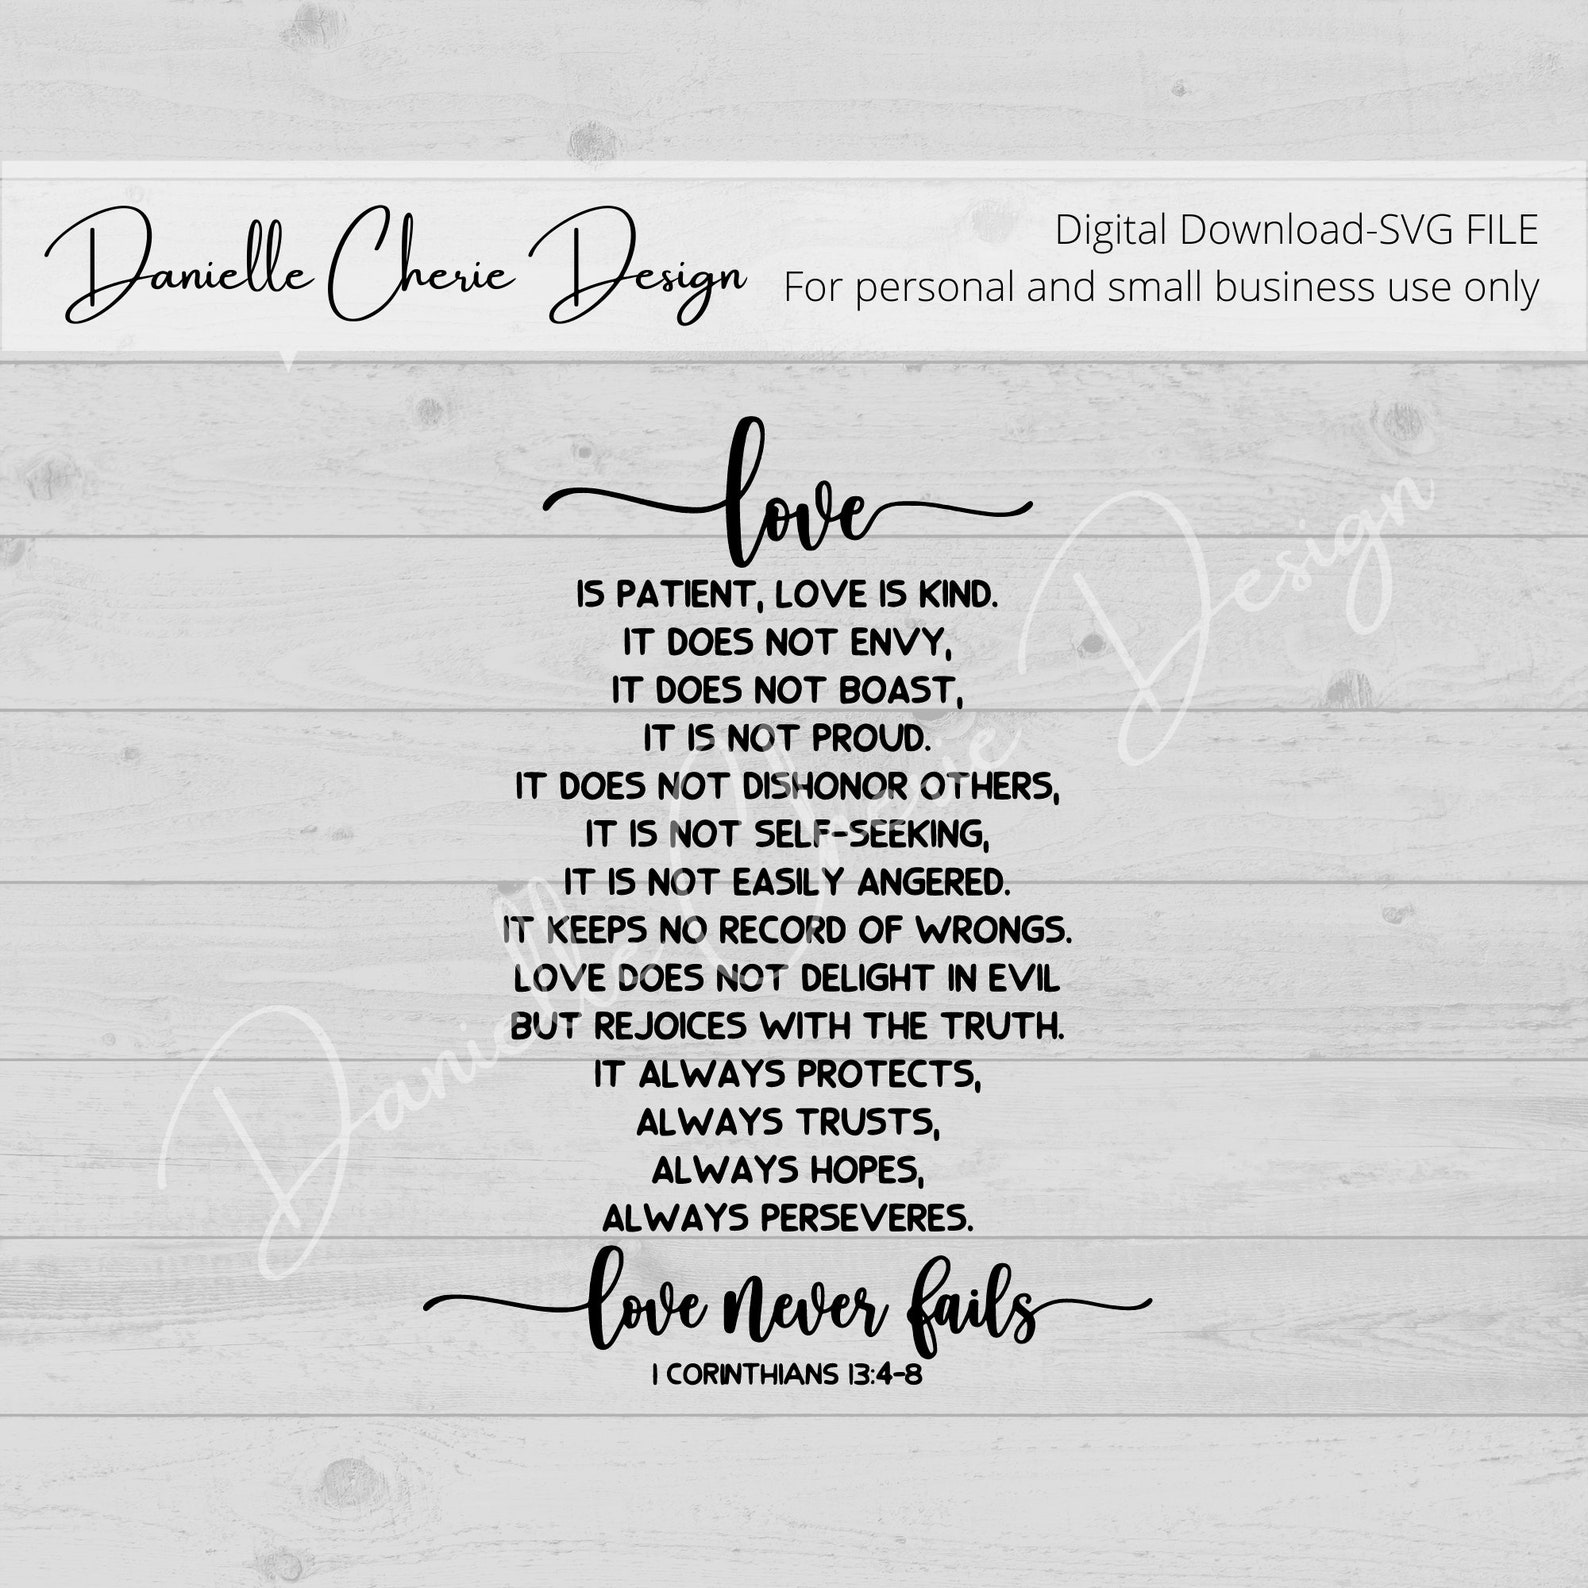 Danielle Cherie Design
Digital Download-SVG FILE
For personal and small business use only
love
IS PATIENT, LOVE IS KIND.
IT DOES NOT ENVY,
IT DOES NOT BOAST,
IT IS NOT PROUD.
IT DOES NOT DISHONOR OTHERS,
IT IS NOT SELF-SEEKING,
IT IS NOT EASILY ANGERED.
IT KEEPS NO RECORD OF WRONGS.
LOVE DOES NOT DELIGHT IN EVIL
BUT REJOICES WITH THE TRUTH.
IT ALWAYS PROTECTS,
ALWAYS TRUSTS,
ALWAYS HOPES,
ALWAYS PERSEVERES.
love never fails
1 CORINTHIANS 13:4-8
Danielle Cherie Design